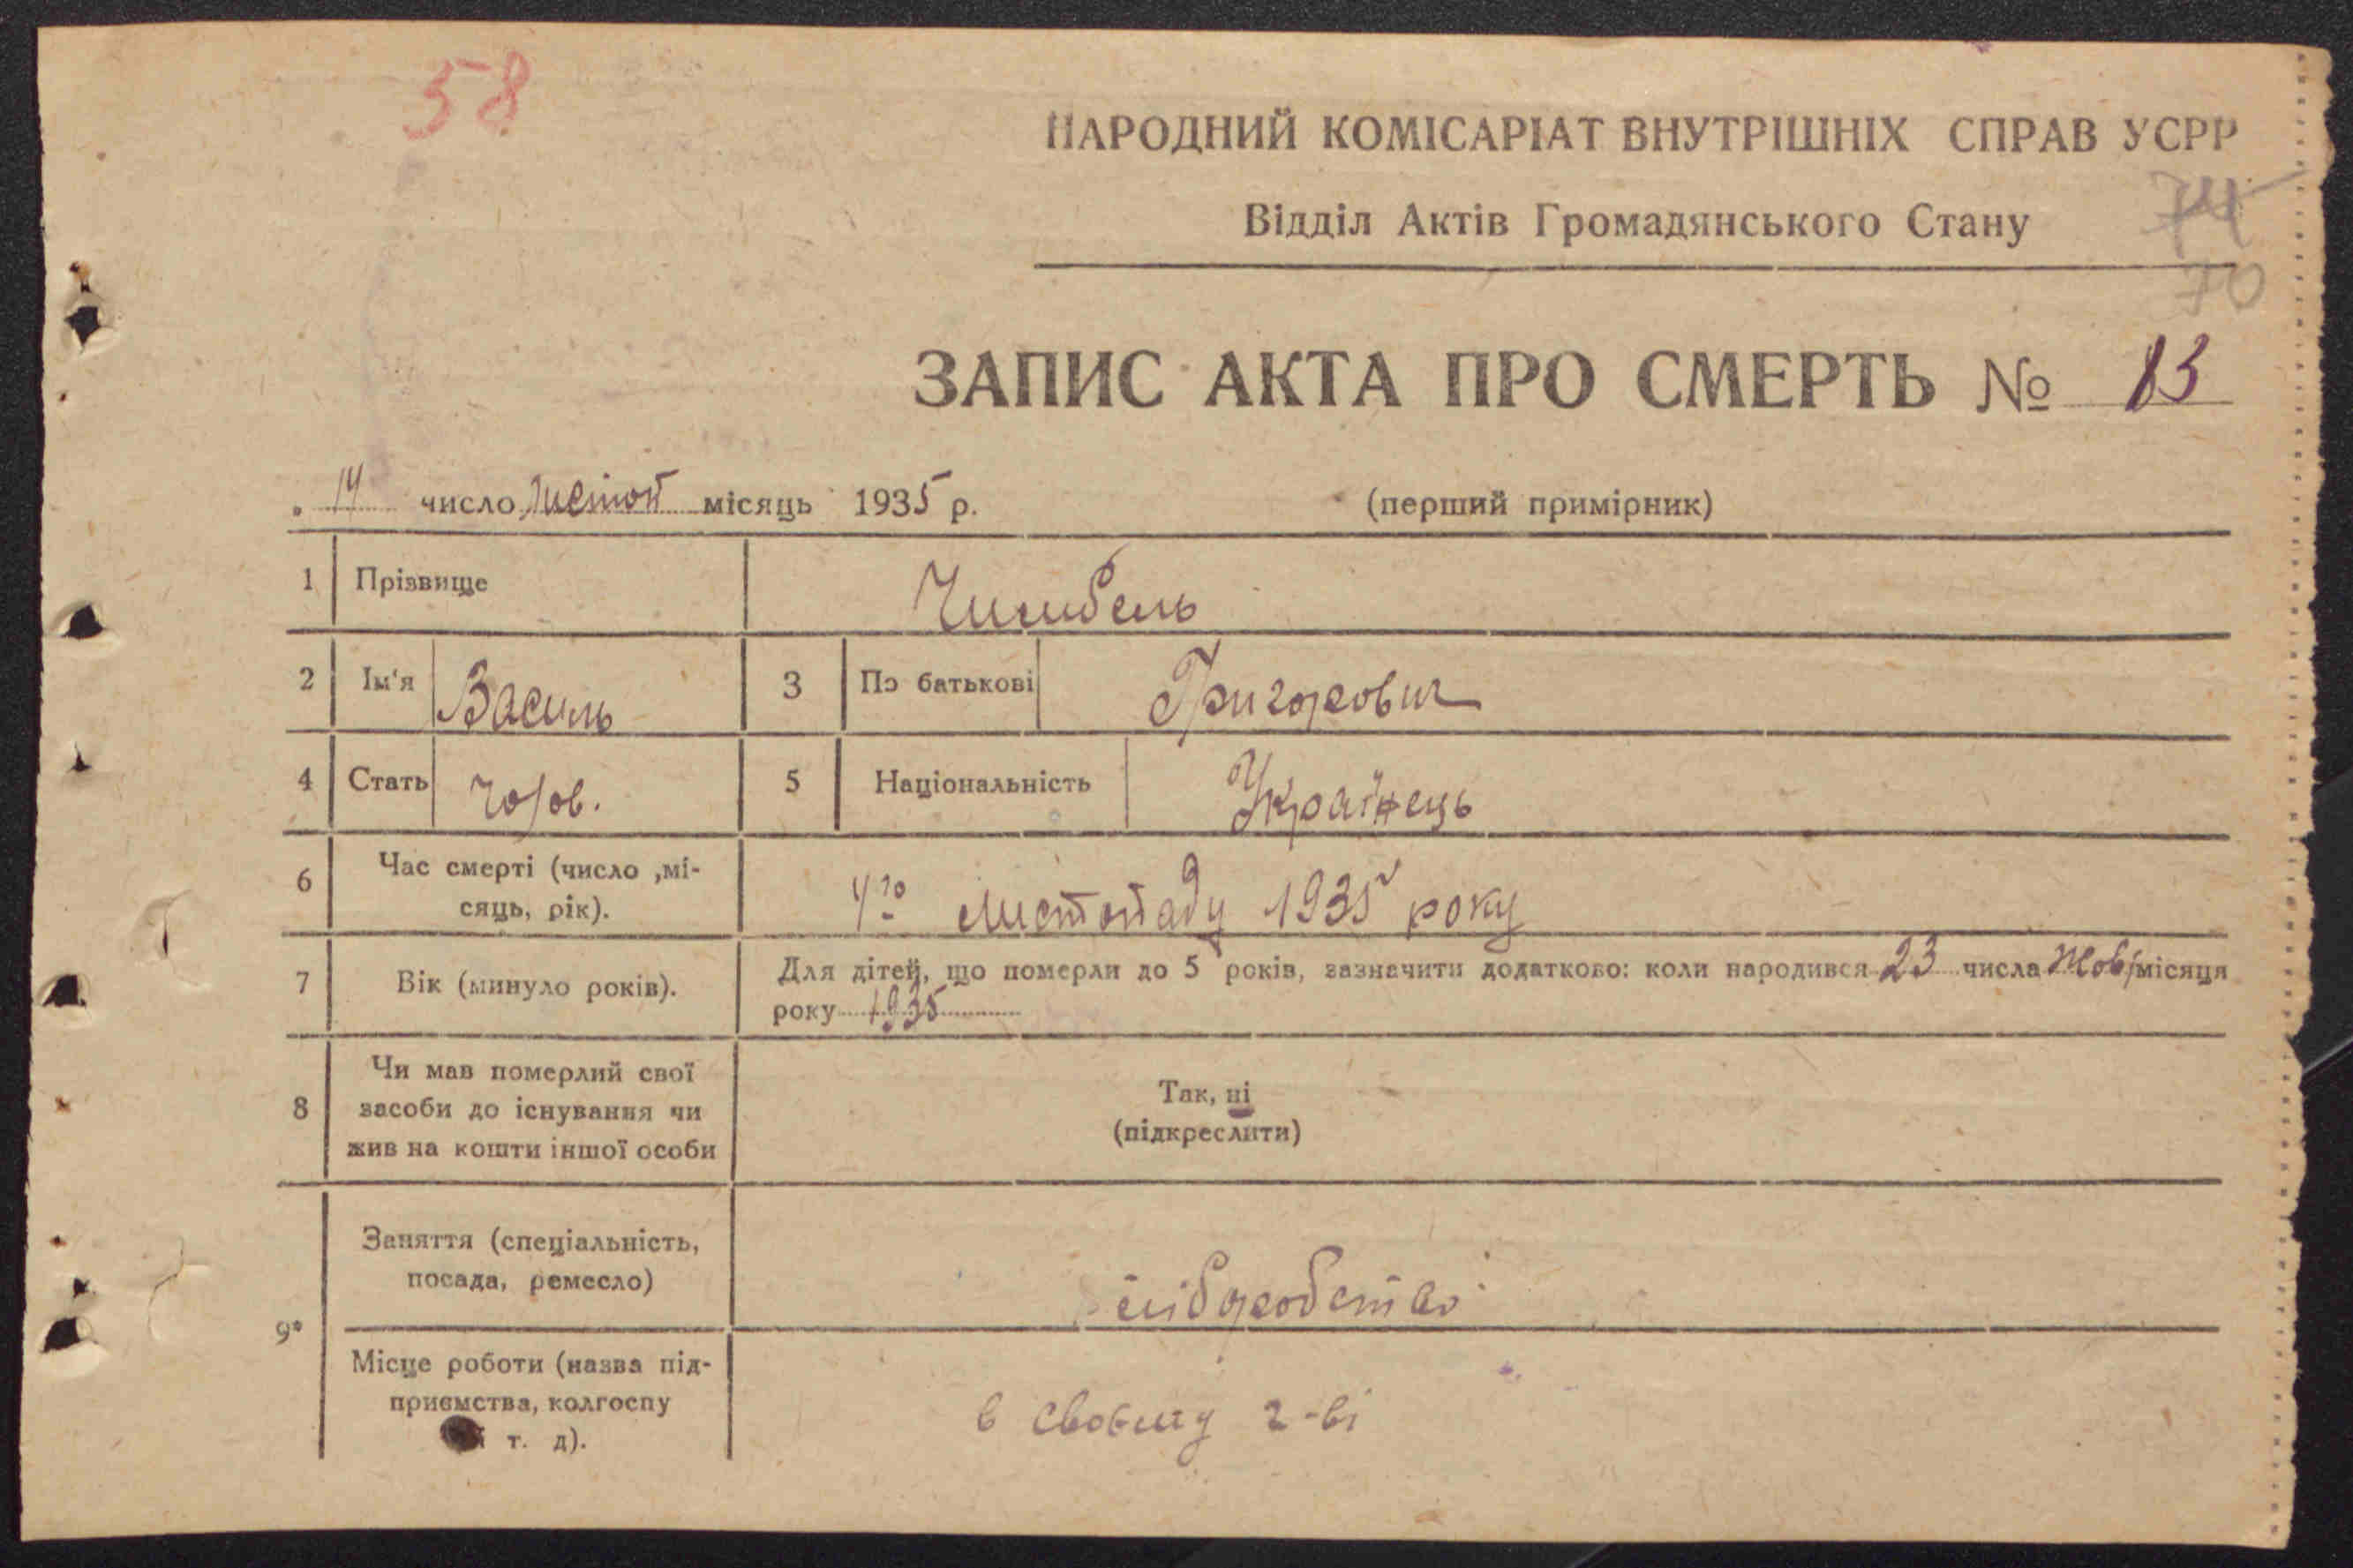 58
НАРОДНИЙ КОМІСАРІАТ ВНУТРІШНІХ СПРАВ УСРР
Відділ Актів Громадянського Стану
74
70
ЗАПИС АКТА ПРО СМЕРТЬ № 83
14 число листоп місяць 1935 р.
(перший примірник)
1 Прізвище
2 Ім'я Василь 3 По батькові Григорович
4 Стать чолов. 5 Національність Українець
6 Час смерті (число ,мі-
сяць, рік).
4го листопаду 1935 року
7 Вік (минуло років).
Для дітей, що померли до 5 років, зазначити додатково: коли народився 23 числа жов місяця
року 1935
8 Чи мав померлий свої
засоби до існування чи
жив на кошти іншої особи
Так, ні
(підкреслити)
9 Заняття (спеціальність,
посада, ремесло)
хліборобство
Місце роботи (назва під-
приємства, колгоспу
і т. д).
в своєму г-ві